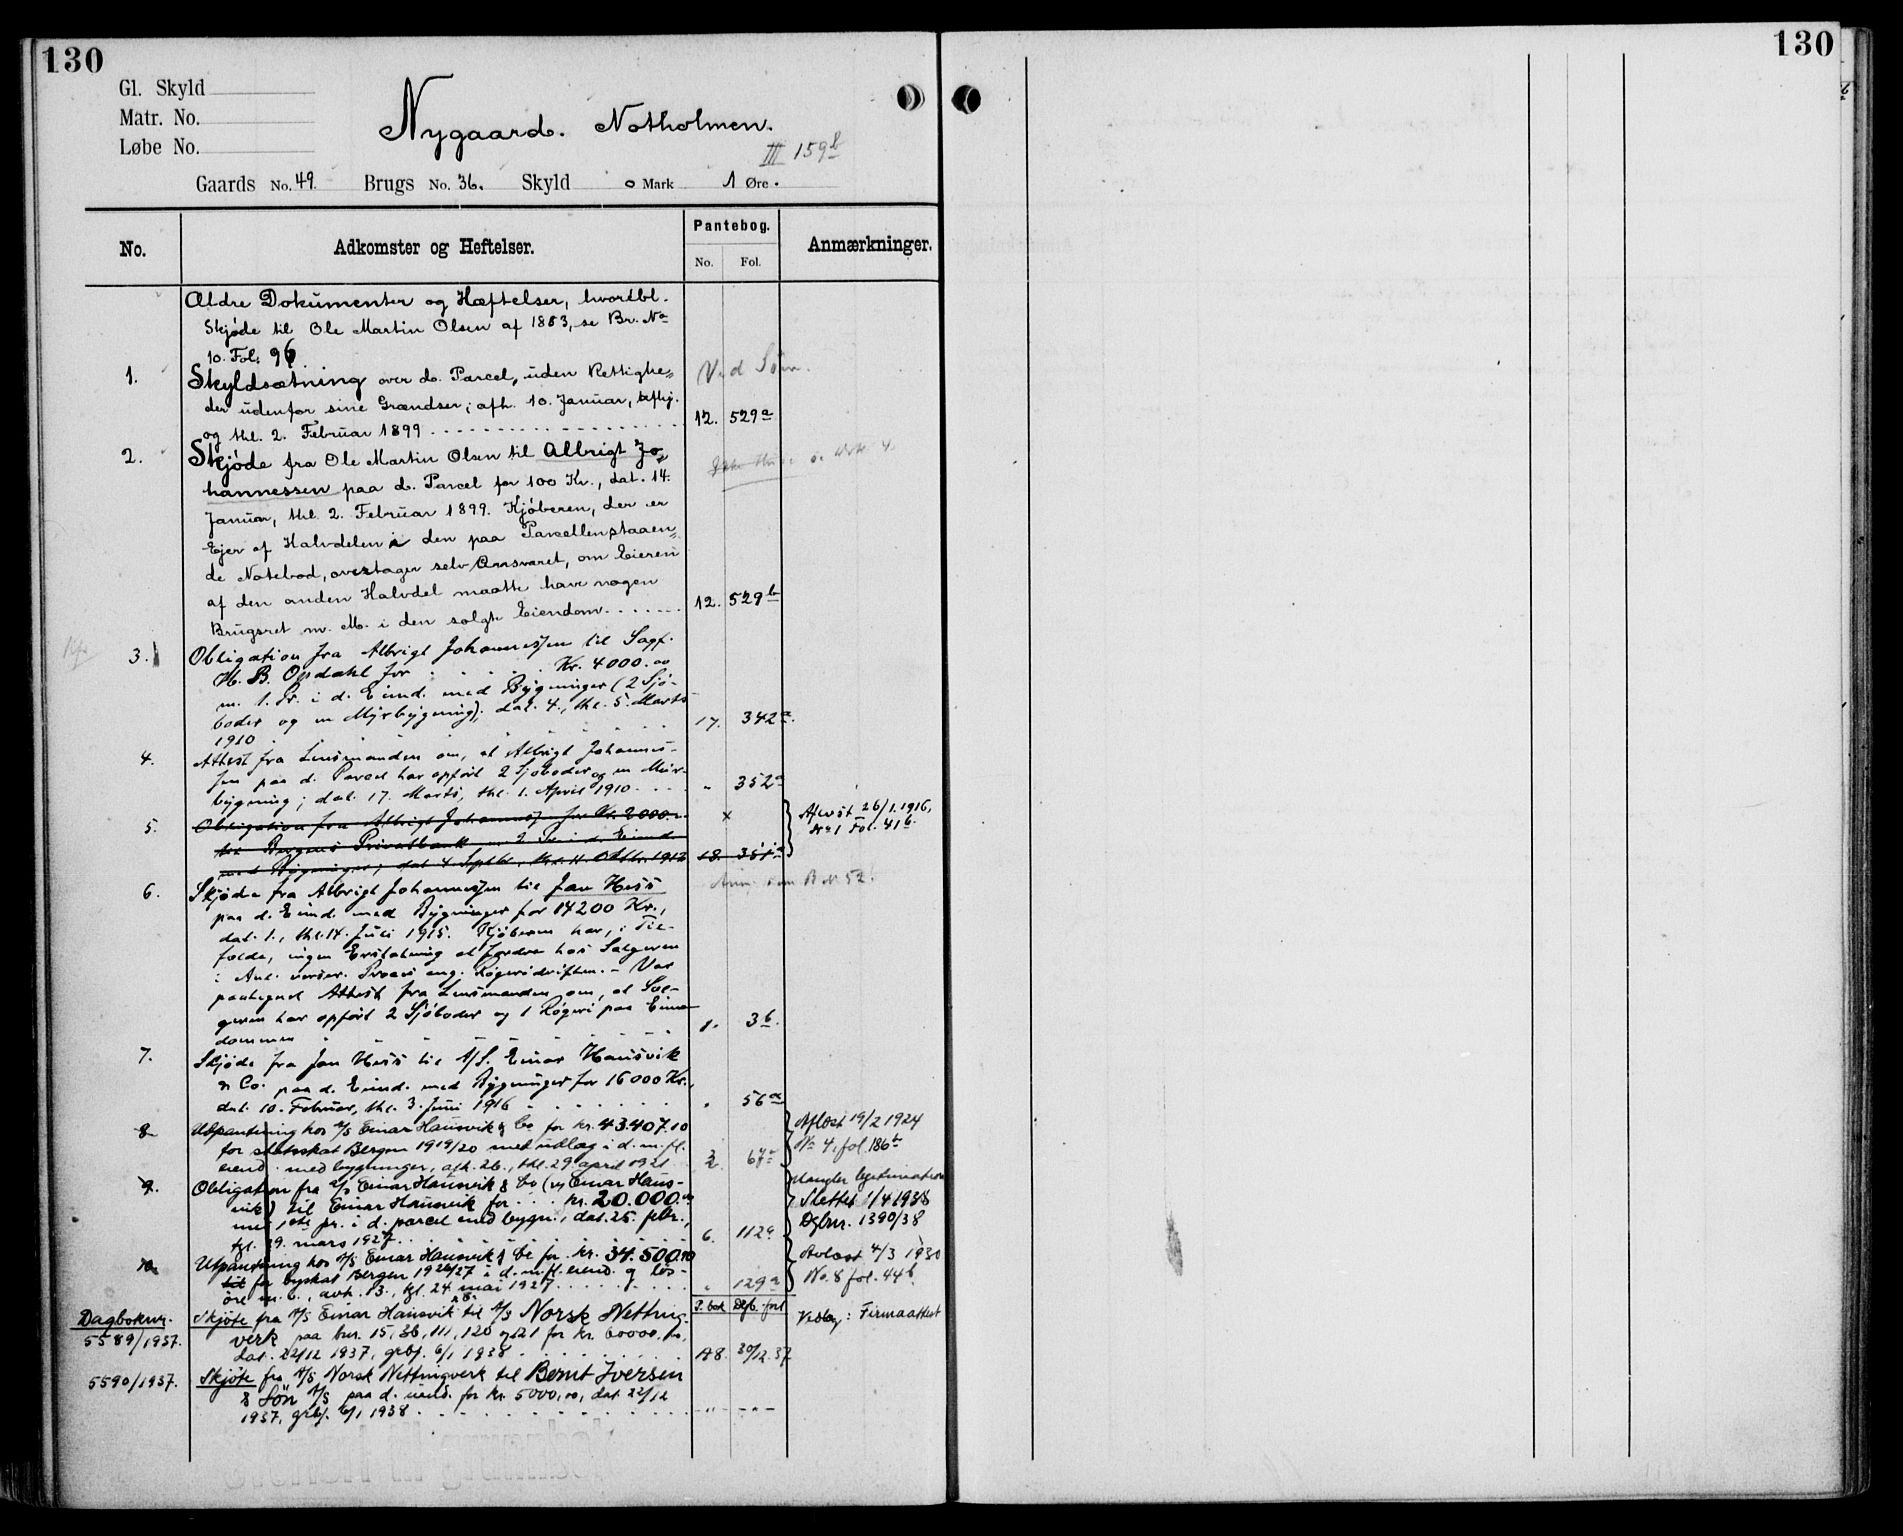 130
130
Gl. Skyld
Matr. No.
Løbe No.
Nygaard. Notholmen.
III 159b
Gaards No. 49. Brugs No. 36. Skyld 0 Mark 1 Øre.
No. Adkomster og Heftelser. Pantebog. Anmærkninger.
No. Fol.
Ældre Dokumenter og Hæftelser, hvoriblt.
Skjøde til Ole Martin Olsen af 1883, se Br. No
10. Fol: 96
1. Skyldsætning over d. Parcel, uden Rettighe-
der udenfor sine Grændser; afh. 10. Januar,
og thl. 2. Februar 1899 12. 529a
2. Skjøde fra Ole Martin Olsen til Albrigt Jo-
hannessen paa d. Parcel for 100 Kr., dat. 14.
Januar, thl. 2. Februar 1899. Kjøberen, der er
Ejer af Halvdelen i den paa Parcellen staaen-
de Notebod, overtager selv Ansvaret, om Eieren
af den anden Halvdel maatte have nogen
Brugsret m. M. i den solgte Eiendom 12. 529b
3. Obligation fra Albrigt Johannessen til Sagf.
H. B. Opdahl for Kr. 4000.00
m. 1. Pr. i d. Eiend. med Bygninger (2 Sjø-
boder og en Mürbygning); dat. 4., thl. 5. Marts
1910 17. 342a.
4. Attest fra Lensmanden om, at Albrigt Johannes-
sen paa d. Parcel har opført 2 Sjøboder og en Mür-
bygning; dat. 17. Marts, thl. 1. April 1910 " 352a
5. Obligation fra Albrigt Johannessen for Kr. 2000.-
til Bergens Privatbank m. 2 Pr. i d. Eiend.
med Bygninger; dat 4 Septbr., thl. 11. Oktbr. 1912 18. 351a
Aflyst 26/1. 1916,
No 1 Fol. 41b.
6. Skjøde fra Albrigt Johannessen til Jan Hess
paa d. Eiend. med Bygninger for 14200 Kr.,
dat. 1., thl. 14. Juli 1915. Kjøberen har, i Til-
fælde, ingen Erstatning at fordre hos Sælgeren
i Anl. verser. Proces ang. Røgeridriften. - Var
paategnet Attest fra Lensmanden om, at Sæl-
geren har opført 2 Sjøboder og 1 Røgeri paa Eien-
dommen 1. 3b.
7. Skjøde fra Jan Hess til A/S. Einar Hausvik
& Co. paa d. Eiend. med Bygninger for 16000 Kr.,
dat. 10. Februar, thl. 3. Juni 1916 " 56a
8 Utpantning hos A/S Einar Hausvik & Co for kr. 43.407.10
for statsskat Bergen 1919/20 med utlæg i d. m. fl.
eiend. med bygninger, afh. 26., thl. 29 april 1921 2 67a
Aflæst 19/2 1924
No 4, fol. 186b
9. Obligation fra A/S Einar Hausvik & Co (v/ Einar Haus-
vik) til Einar Hausvik for kr. 20.000.00
med 1ste pr. i d. parcel med bygn., dat. 25. febr.,
tgl. 29. mars 1927 6. 112a
Mangler legitimation
Slettet 1/4 1938
Dgbnr. 1390/38
10. Utpantning hos A/S Einar Hausvik & Co for kr. 34.500.90
til for byskat Bergen 1926/27 i d. m. fl. eiend. og løs-
øre m. v., avh. 13., tgl. 24. mai 1927 " 129a
Avlæst 4/3 1930
No. 8 fol. 44b
P. bok Dgb. ført
Dagboknr.
5589/1937. Skjøte fra A/S Einar Hausvik & Co til A/S Norsk Notting-
verk paa bnr. 15, 36, 111, 120 og 121 for kr. 60000,00,
dat. 22/12 1937, grbf. 6/1 1938 A8. 30/12.37
Vedlag: Firmaattest
5590/1937. Skjøte fra A/S Norsk Nettingverk til Bernt Iversen
& Søn A/S paa d. eiend. for kr. 5000,00, dat. 22/12
1937, grbf. 6/1 1938 -"- -"-